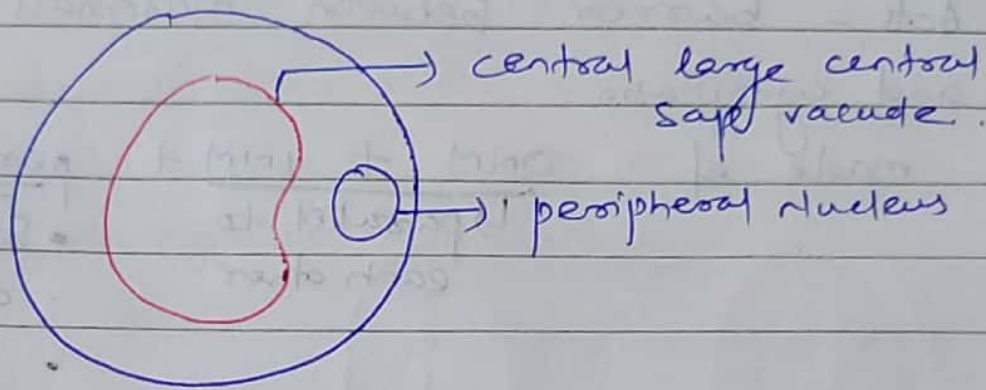 central large central
sape vacuole.
peripheral Nucleus